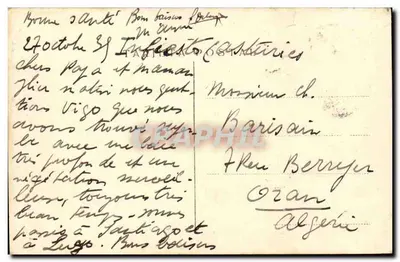 Bonne santé Bons baisers
27 octobre 35 Infiesto Asturies
chers Papa et maman
hier matin nous quit-
tions Vigo que nous
avons trouvé
avec une
très profonde et une
végétation merveil-
leuse, toujours très
beau temps. nous
passé à Santiago et
à Lugo. Bons baisers
Monsieur Ch.
Barisain
7 Rue Berryer
Oran
Algérie
TEAPHILE